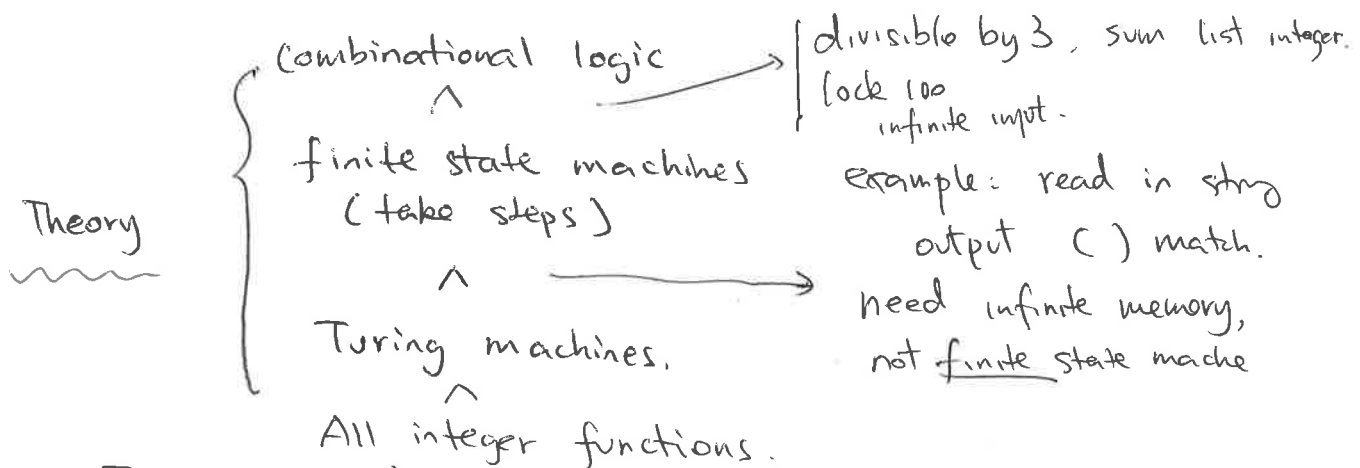 Theory
combinational logic
^
finite state machines
(take steps)
^
Turing machines.
^
All integer functions.
divisible by 3, sum list integer.
lock 100
infinite input.
example: read in strng
output ( ) match.
need infinite memory,
not finite state mache